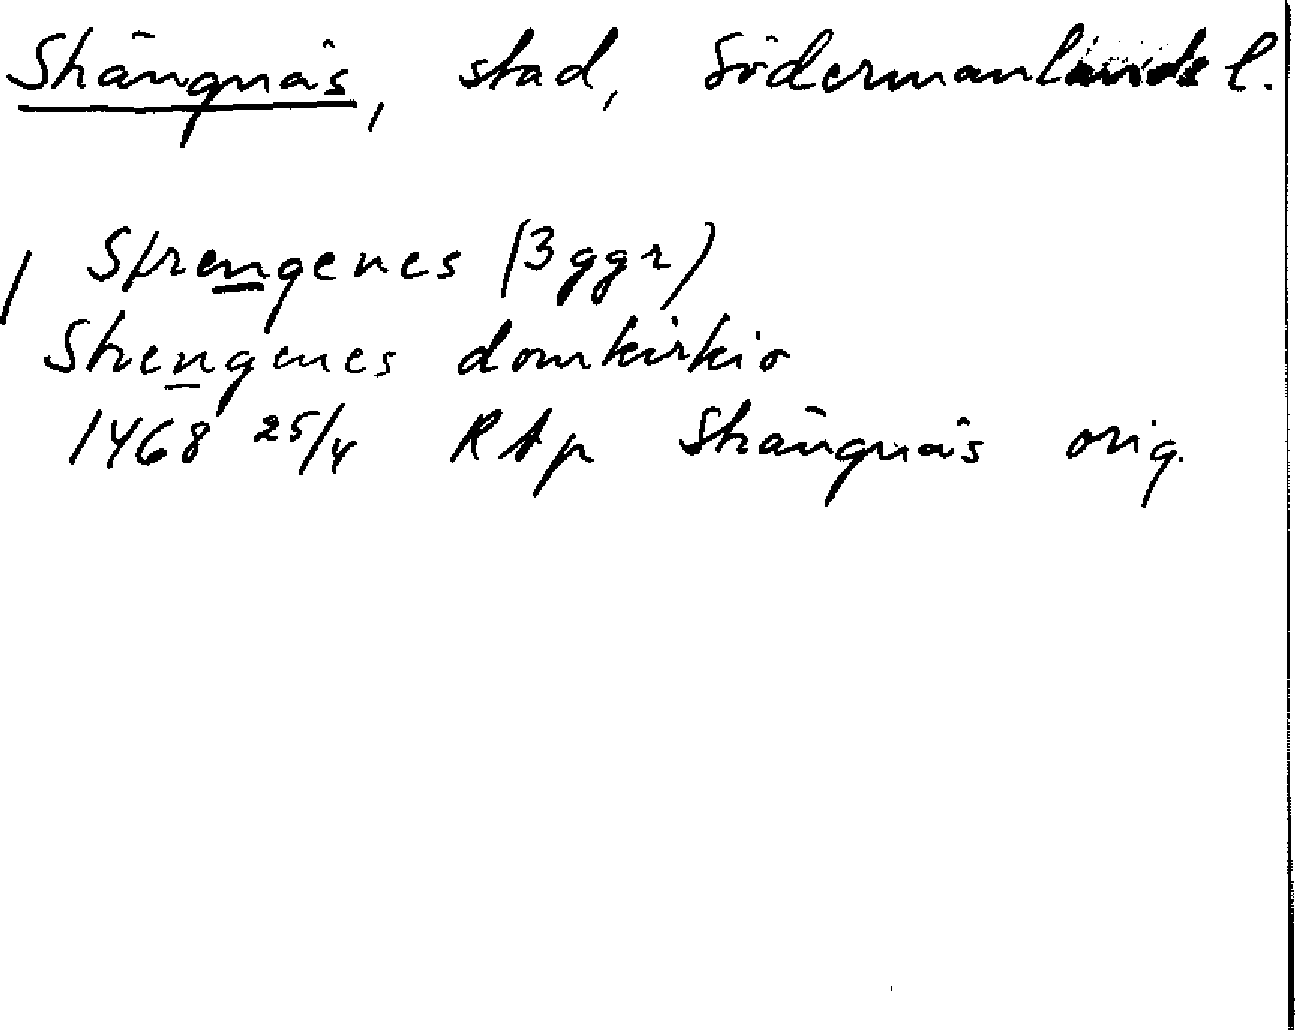 Strängnäs, stad, Södermanlands l.
/ Strengenes (3 ggr)
Strengenes domkirkio
1468 25/4 RAp Strängnäs orig.